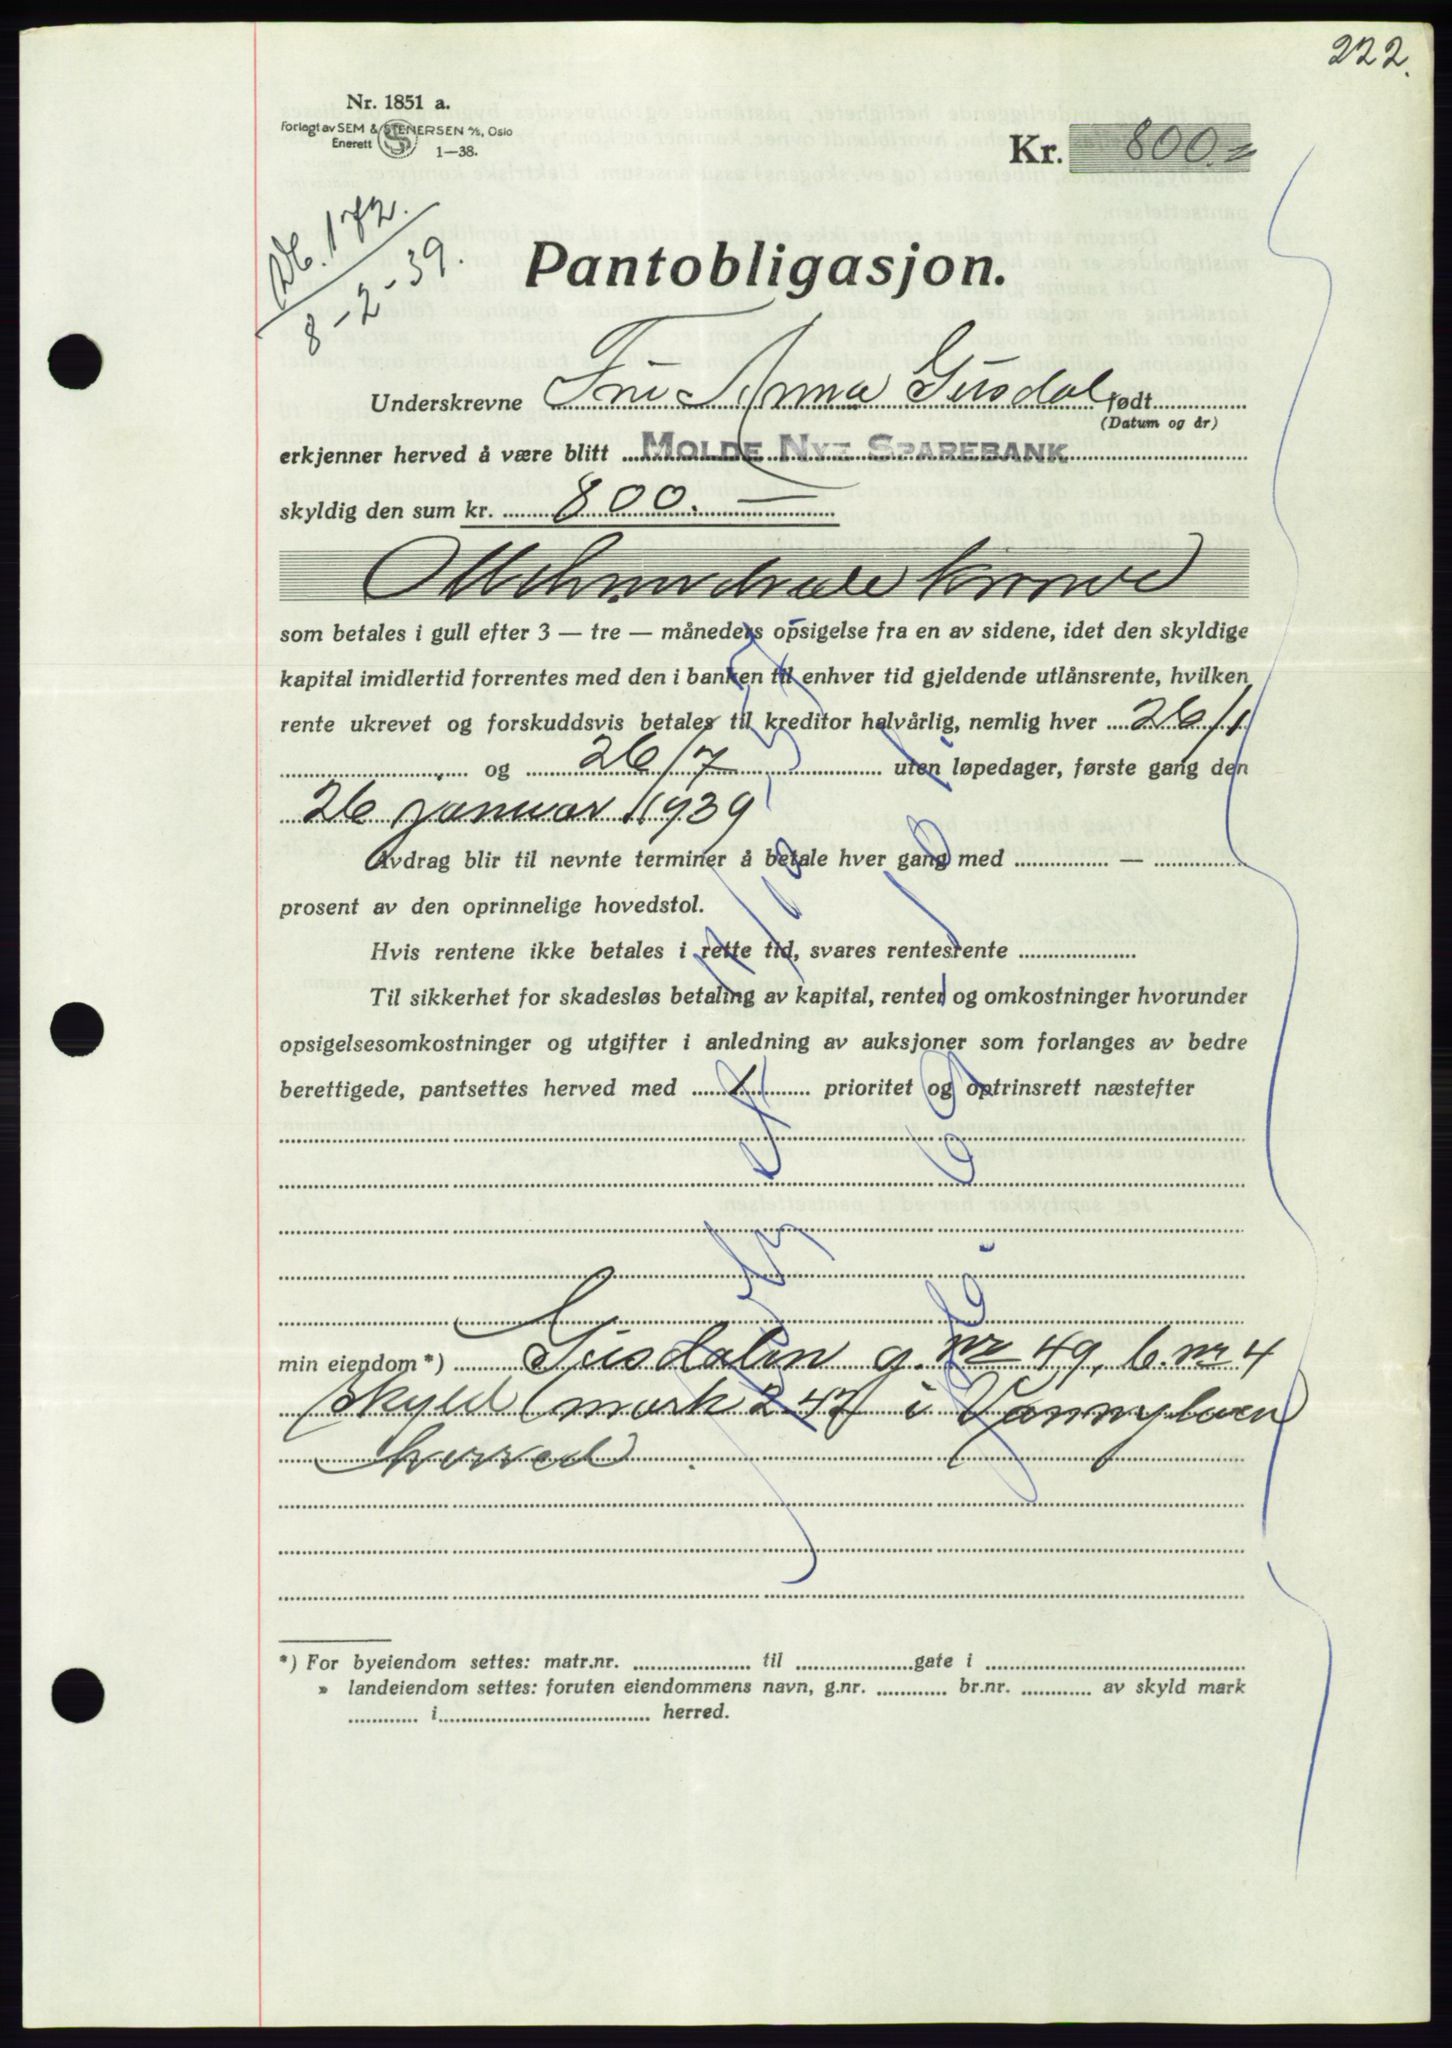 222.
Nr. 1851 a.
Forlagt av SEM & STENERSEN A/S, Oslo
Enerett 1—38.
Kr. 800.=
Db. 172.
8-2-39.
Pantobligasjon.
Underskrevne Fru Anna Gusdal født
(Datum og år)
erkjenner herved å være blitt MOLDE NYE SPAREBANK
skyldig den sum kr. 800.—
Ottehundrede kroner
som betales i gull efter 3 — tre — måneders opsigelse fra en av sidene, idet den skyldige
kapital imidlertid forrentes med den i banken til enhver tid gjeldende utlånsrente, hvilken
rente ukrevet og forskuddsvis betales til kreditor halvårlig, nemlig hver 26/1
og 26/7 uten løpedager, første gang den
26 januar 1939
Avdrag blir til nevnte terminer å betale hver gang med —
prosent av den oprinnelige hovedstol.
Hvis rentene ikke betales i rette tid, svares rentesrente
Til sikkerhet for skadesløs betaling av kapital, renter og omkostninger hvorunder
opsigelsesomkostninger og utgifter i anledning av auksjoner som forlanges av bedre
berettigede, pantsettes herved med 1 prioritet og optrinsrett næstefter
min eiendom *) Gusdalen g. nr 49, b. nr 4
skyld mark 2.47 i Vannylven
herred.
*) For byeiendom settes: matr.nr. til gate i
» landeiendom settes: foruten eiendommens navn, g.nr. br.nr. av skyld mark
i herred.